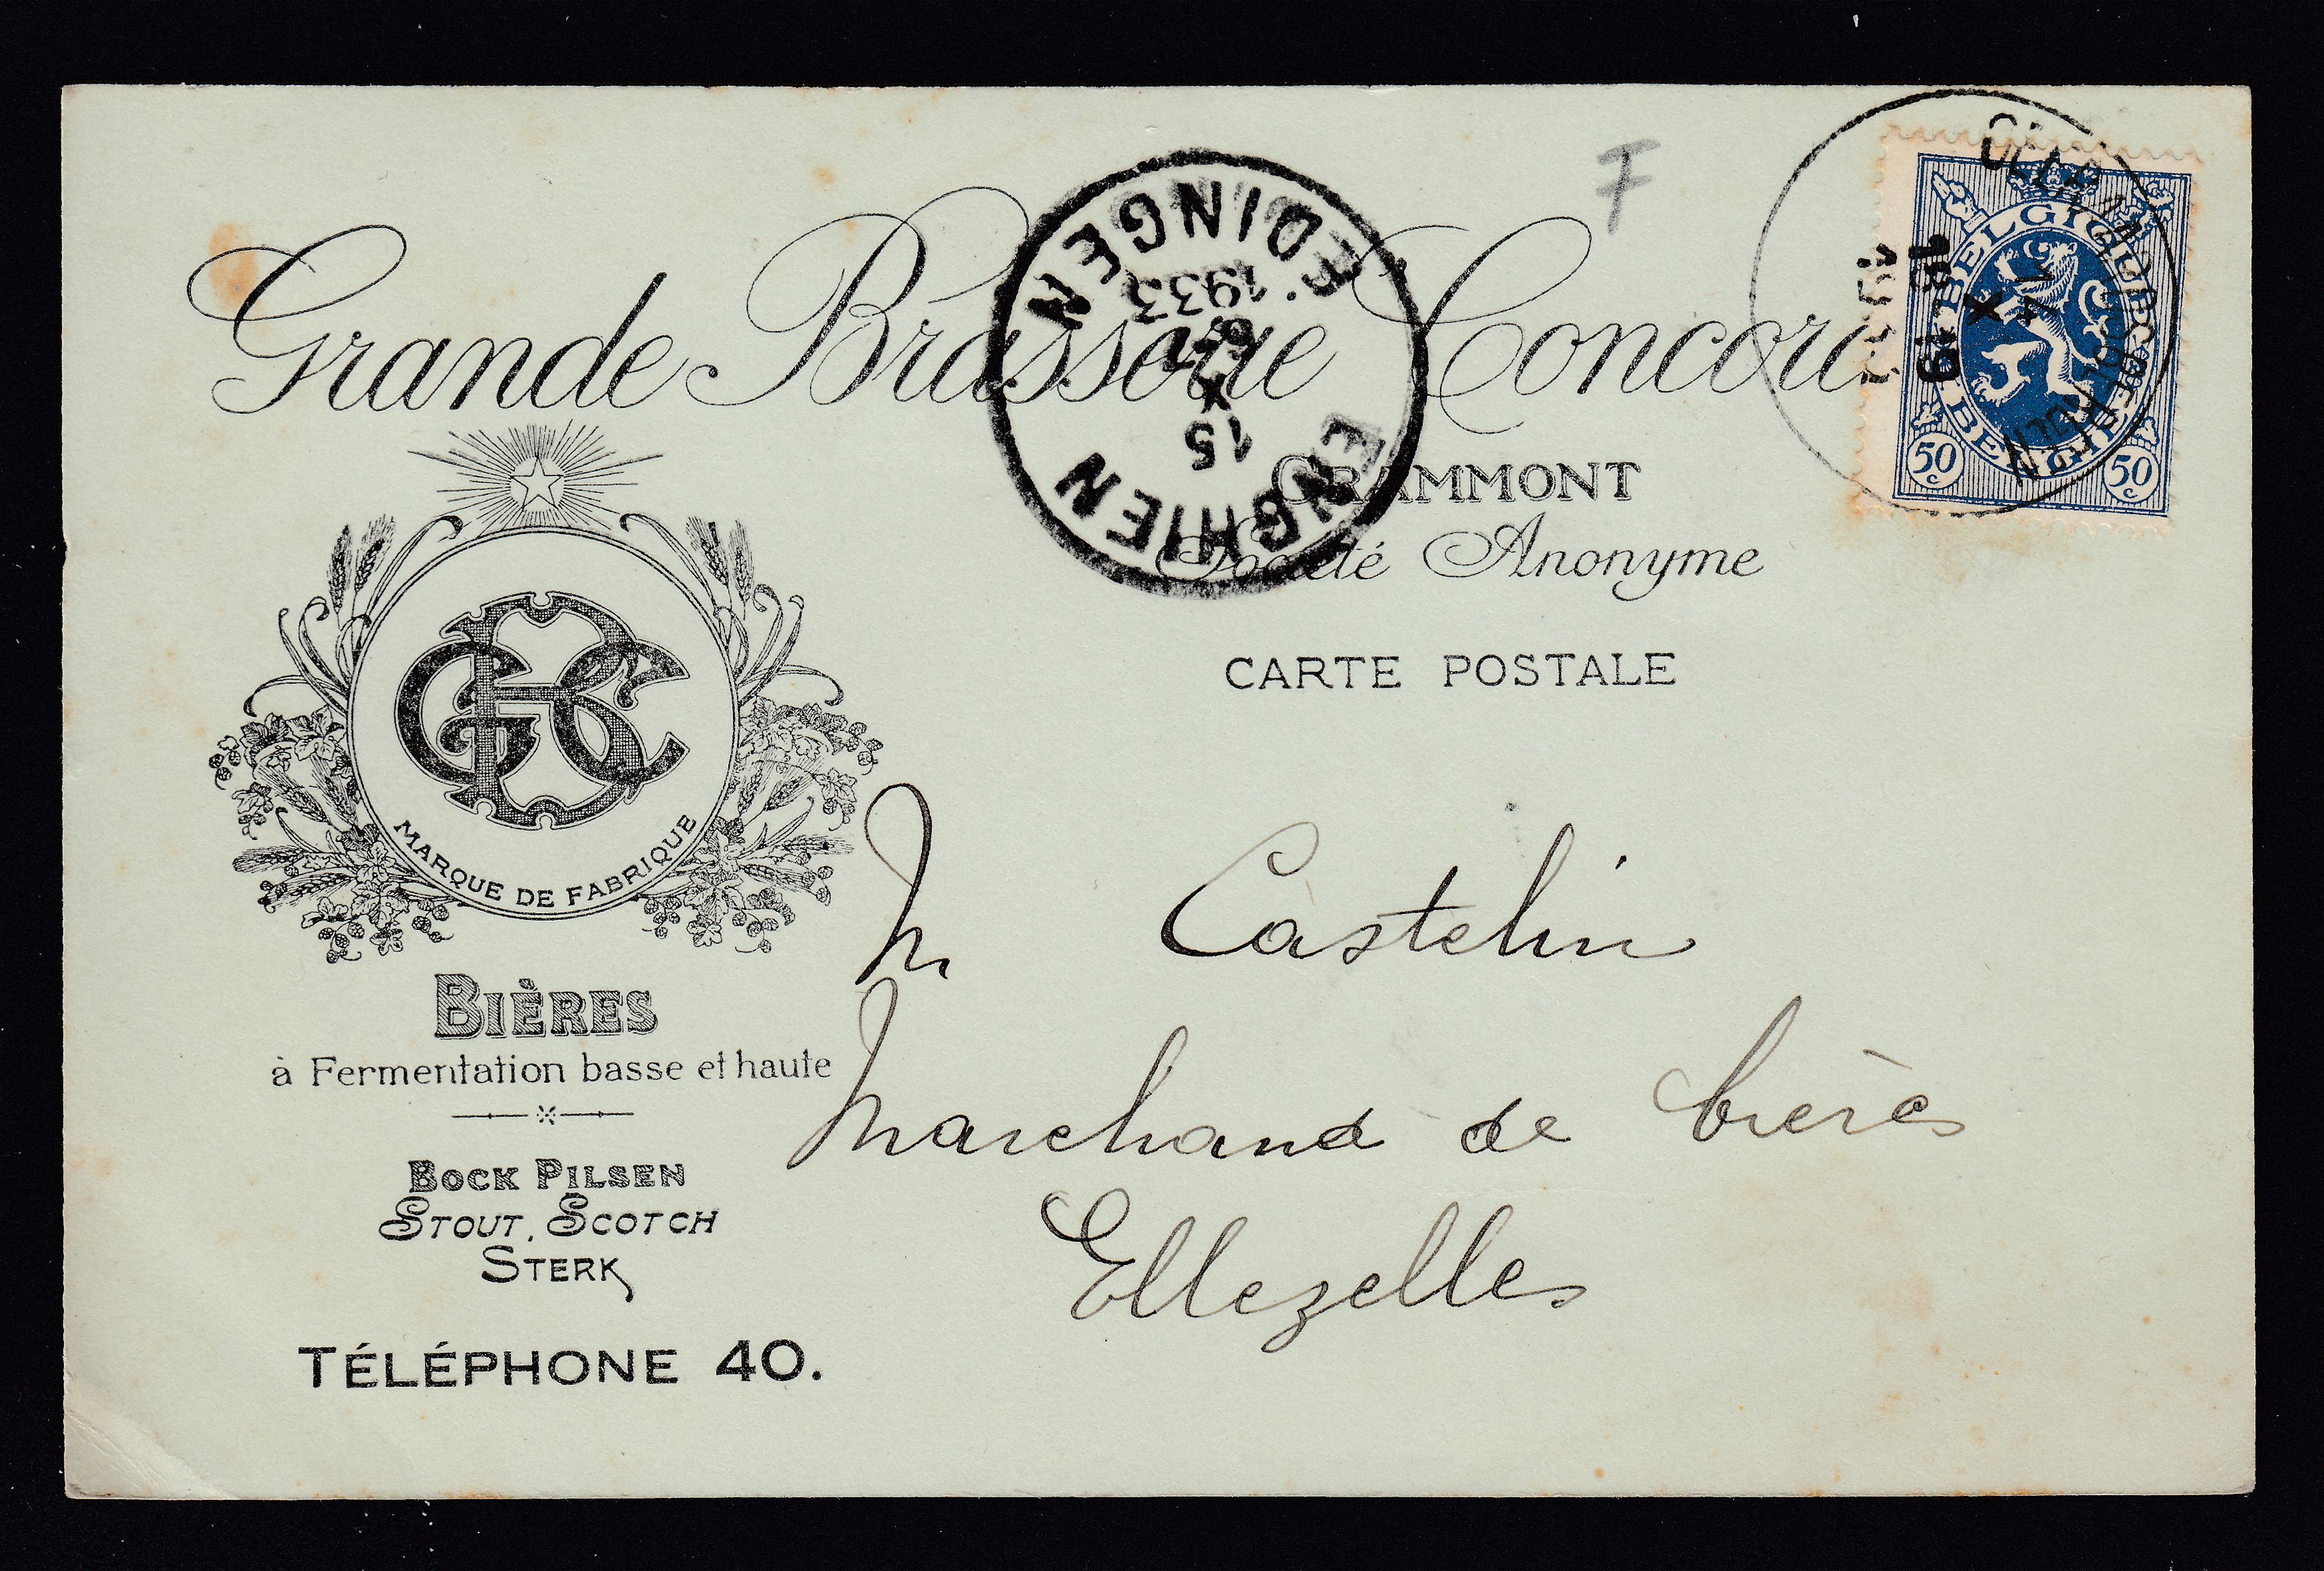 F
Grande Brasserie Concord
GRAMMONT
Société Anonyme
CARTE POSTALE
EDINGEN
1933
X
15
ENGHIEN
BELGIQUE
BELGIË
50 c
50 c
19
X
GBC
MARQUE DE FABRIQUE
BIÈRES
à Fermentation basse et haute
BOCK PILSEN
STOUT, SCOTCH
STERK
TÉLÉPHONE 40.
M Castelin
Marchand de bières
Ellezelles